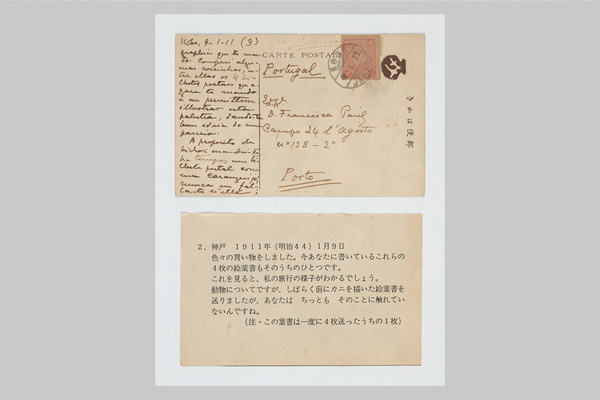 Kobe, 9-1-11 (3)
graphias que te man-
do. Comprei algu-
mas coisinhas, en-
tre ellas os 4 bi-
lhetes postaes que a-
gora te mando
e me permittem
illustrar esta
palestra, dando-te
bem ideia do meu
passeio.
A proposito de
bichos: mandei-te
ha tempos um bi-
lhete postal com
um caranguejo;
nunca m' fal-
laste n'elle;
Via Siberia
CARTE POSTALE
Portugal
D. Francisca Paul
Campo 24 d'Agosto
nº 128-2º
Porto
きかは便郵
2、神戸 1911年(明治44)1月9日
色々の買い物をしました。今あなたに書いているこれらの
4枚の絵葉書もそのうちのひとつです。
これを見ると、私の旅行の様子がわかるでしょう。
動物についてですが、しばらく前にカニを描いた絵葉書を
送りましたが、あなたは ちっとも そのことに触れてい
ないんですね。
(注・この葉書は一度に4枚送ったうちの1枚)